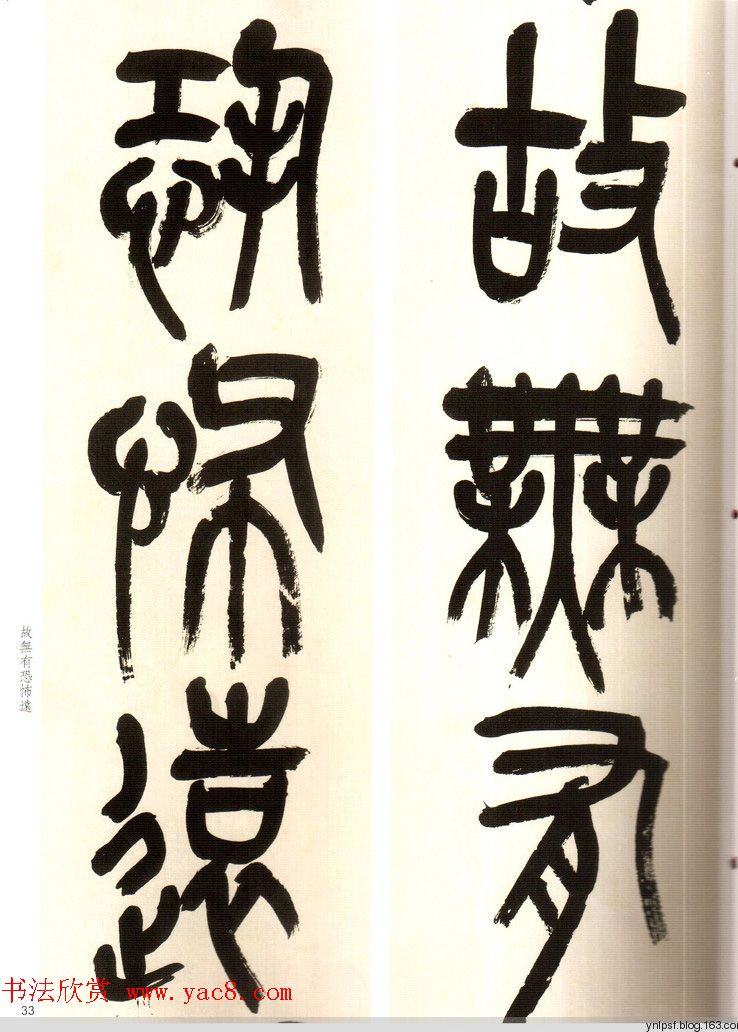 故無有
恐怖遠
故無有恐怖遠
书法欣赏 www.yac8.com
33
ynlpsf.blog.163.co